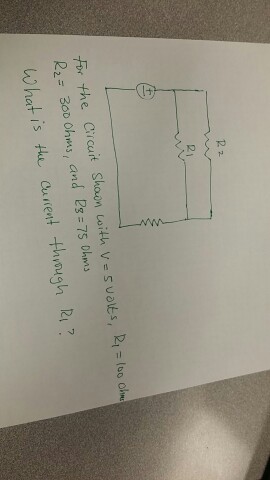 R2
R1
±
For the Circuit Shown with V = 5 volts, R1 = 100 ohms
R2 = 300 Ohms, and R3 = 75 Ohms
What is the current through R1?